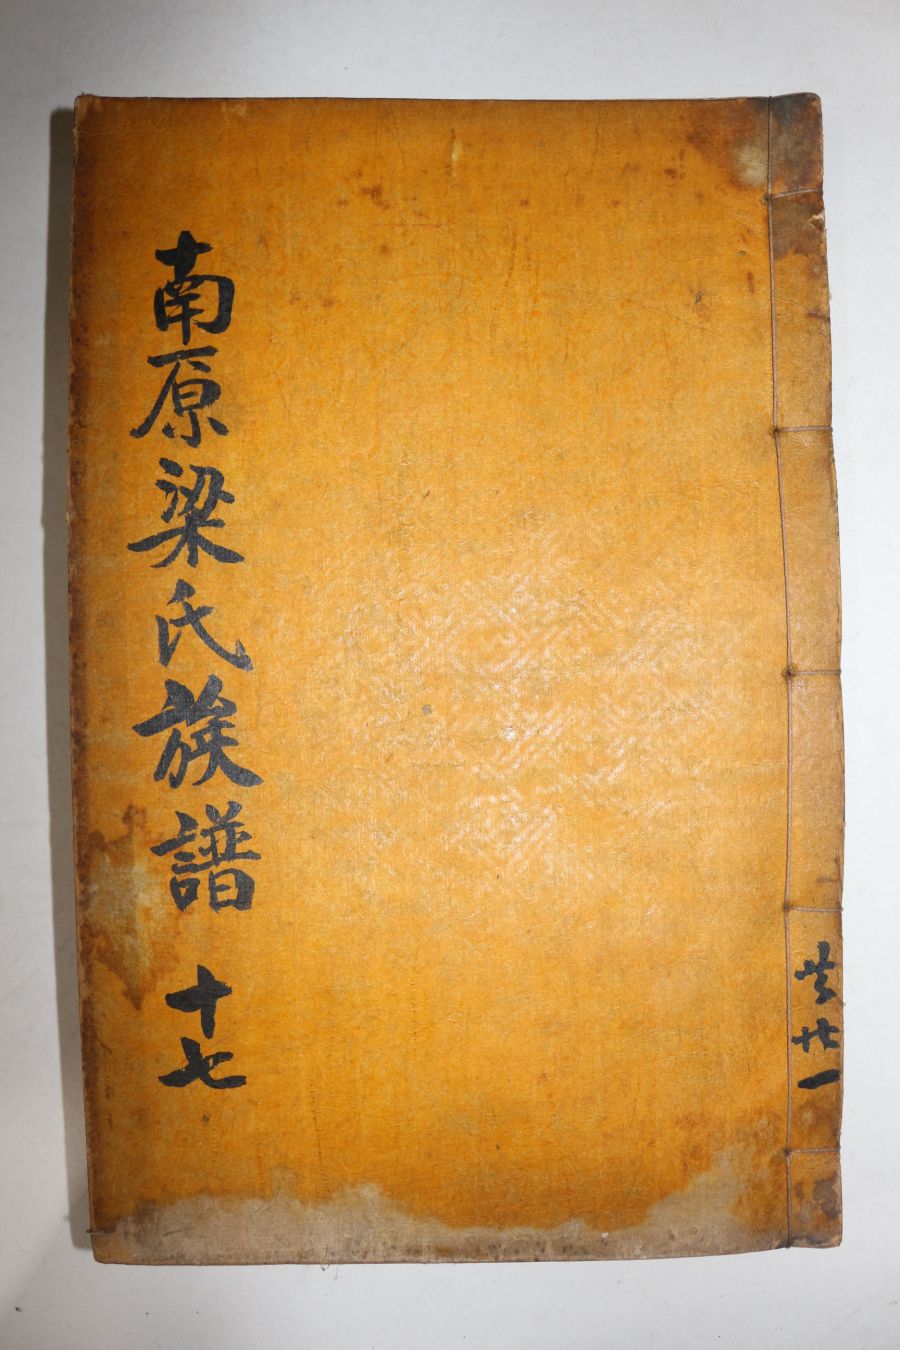 共廿一
南原梁氏族譜 十七